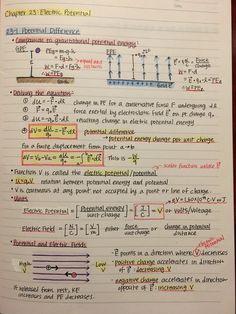 Chapter 23: Electric Potential
23-1 Potential Difference
• Comparison to gravitational potential energy:
GPE
EPE
• Deriving the equation:
① dU = -F⃗·dl⃗ change in PE for a conservative force F⃗ undergoing dl⃗
② F⃗ = q₀E⃗ force exerted by electrostatic field E⃗ on pt charge q₀
③ dU = -q₀E⃗·dl⃗ resulting change in electric potential energy
④ dV = dU/q₀ = -E⃗·dl⃗ potential difference
→ potential energy change per unit charge
For a finite displacement from point a→b
ΔV = V_b - V_a = ΔU/q₀ = -∫E⃗·dl⃗ This is -W/q₀
scalar function unlike E⃗
• Function V is called the electric potential/potential
• U = q₀V relation between potential energy and potential
• V is continuous at any point not occupied by a point or line of charge
• Units
Electric Potential = [potential energy / unit charge] = [J/C] = V or volts/voltage
Electric Field = [N/C] = [V/m] either force / unit charge or change in potential / distance
• Potential and Electric Fields:
High V
Low V
E⃗ points in a direction where V decreases
electric potential
• positive charge accelerates in direction of E⃗: decreasing V
• negative charge accelerates in direction opposite of E⃗: increasing V
If released from rest, KE increases and PE decreases.